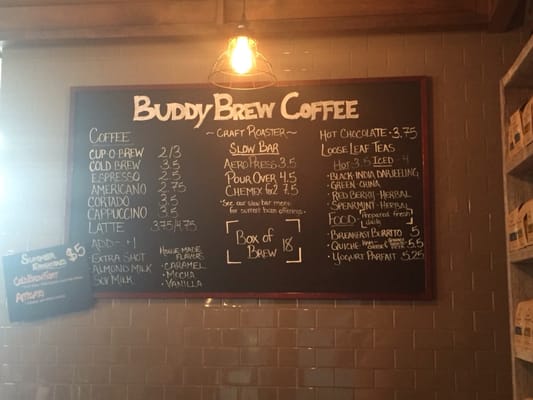 BUDDY BREW COFFEE
~ CRAFT ROASTER ~
COFFEE
CUP-O BREW 2/3
COLD BREW 3.5
ESPRESSO 2.5
AMERICANO 2.75
CORTADO 3.5
CAPPUCCINO 3.5
LATTE 3.75/4.75
ADD - +1
EXTRA SHOT
ALMOND MILK
SOY MILK
HOUSE-MADE
FLAVORS
- CARAMEL
- MOCHA
- VANILLA
SLOW BAR
AEROPRESS 3.5
POUR OVER 4.5
CHEMEX 7.5
*See our slow bar menu
for current bean offerings*
BOX OF
BREW 18
HOT CHOCOLATE - 3.75
LOOSE LEAF TEAS
HOT 3.5 ICED 4
- BLACK-INDIA DARJEELING
- GREEN CHINA
- RED BERRY-HERBAL
- SPEARMINT-HERBAL
FOOD Prepared fresh
daily
- BREAKFAST BURRITO 5
- QUICHE 5.5
- YOGURT PARFAIT 5.25
SUMMER
$5
COLD BREW